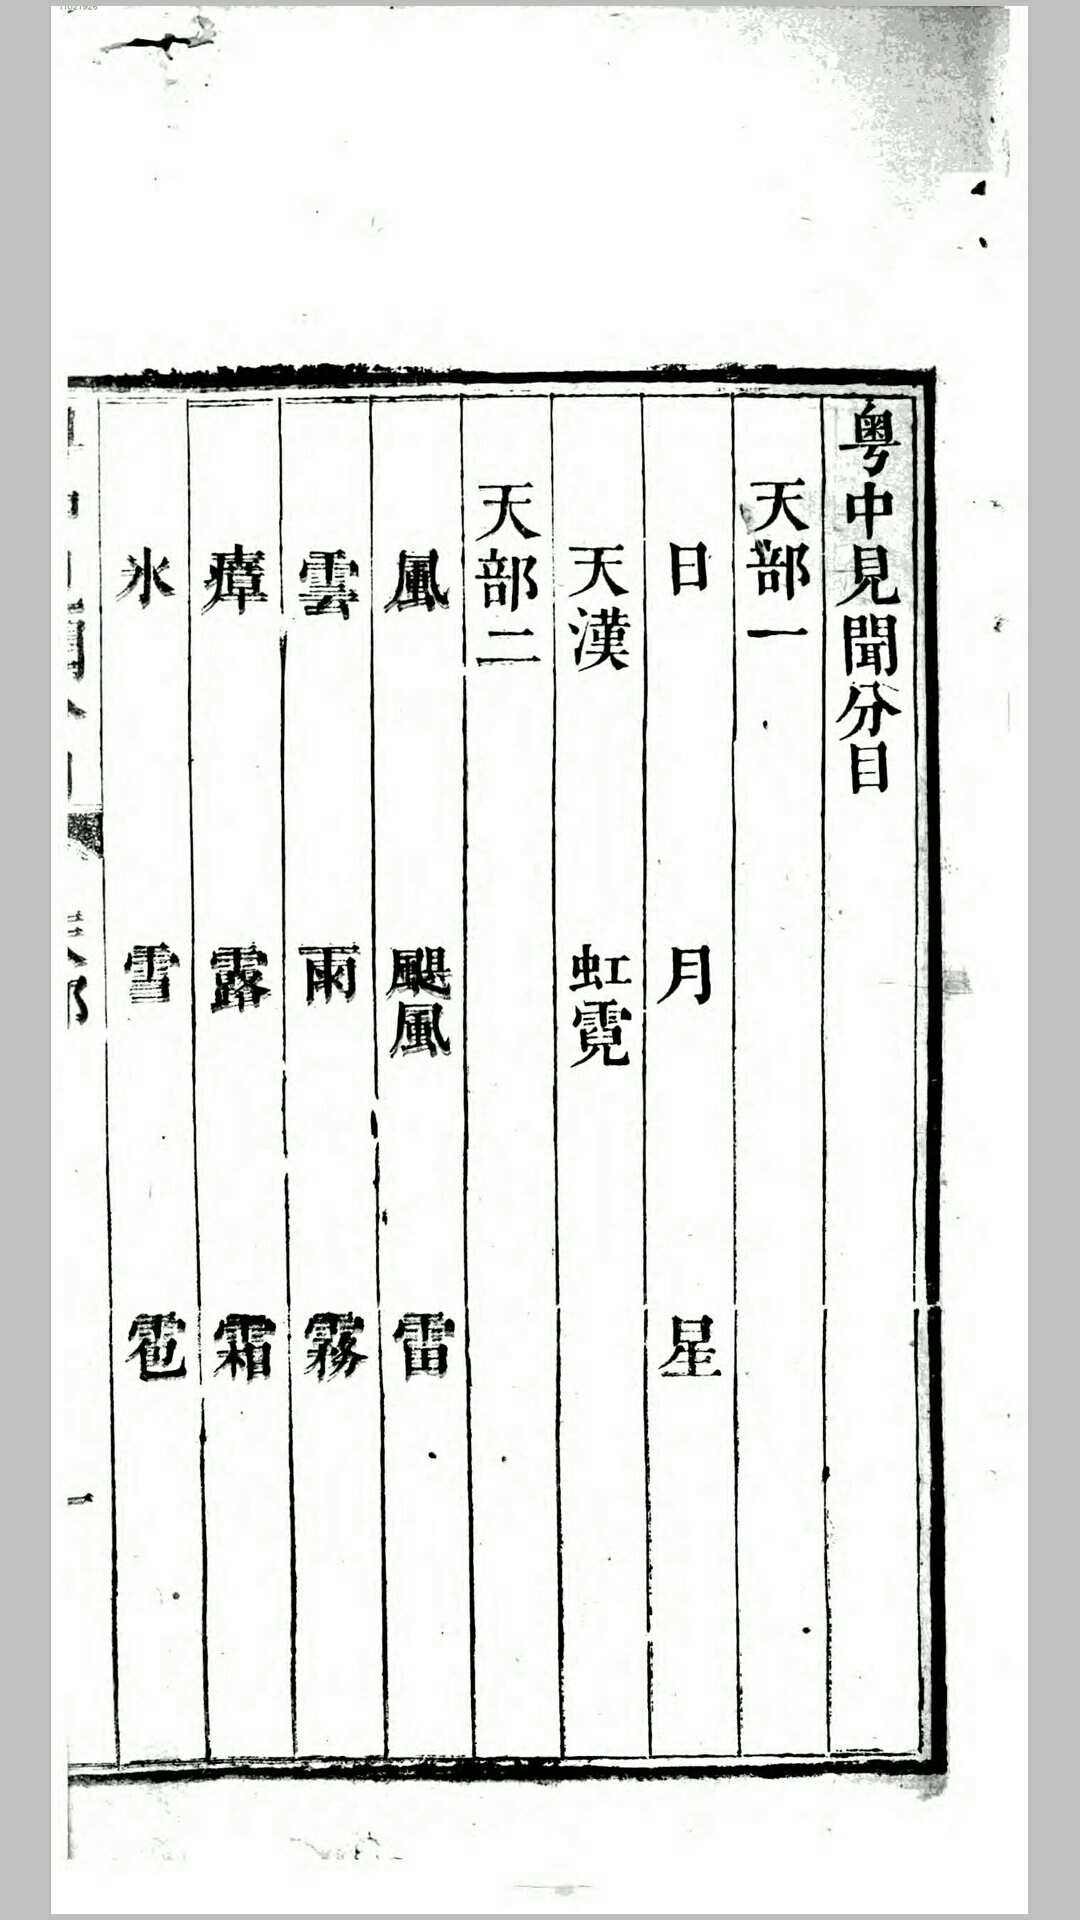 粤中見聞分目
天部一
日 月 星
天漢 虹霓
天部二
風 颶風 雷
雲 雨 霧
瘴 露 霜
氷 雪 雹